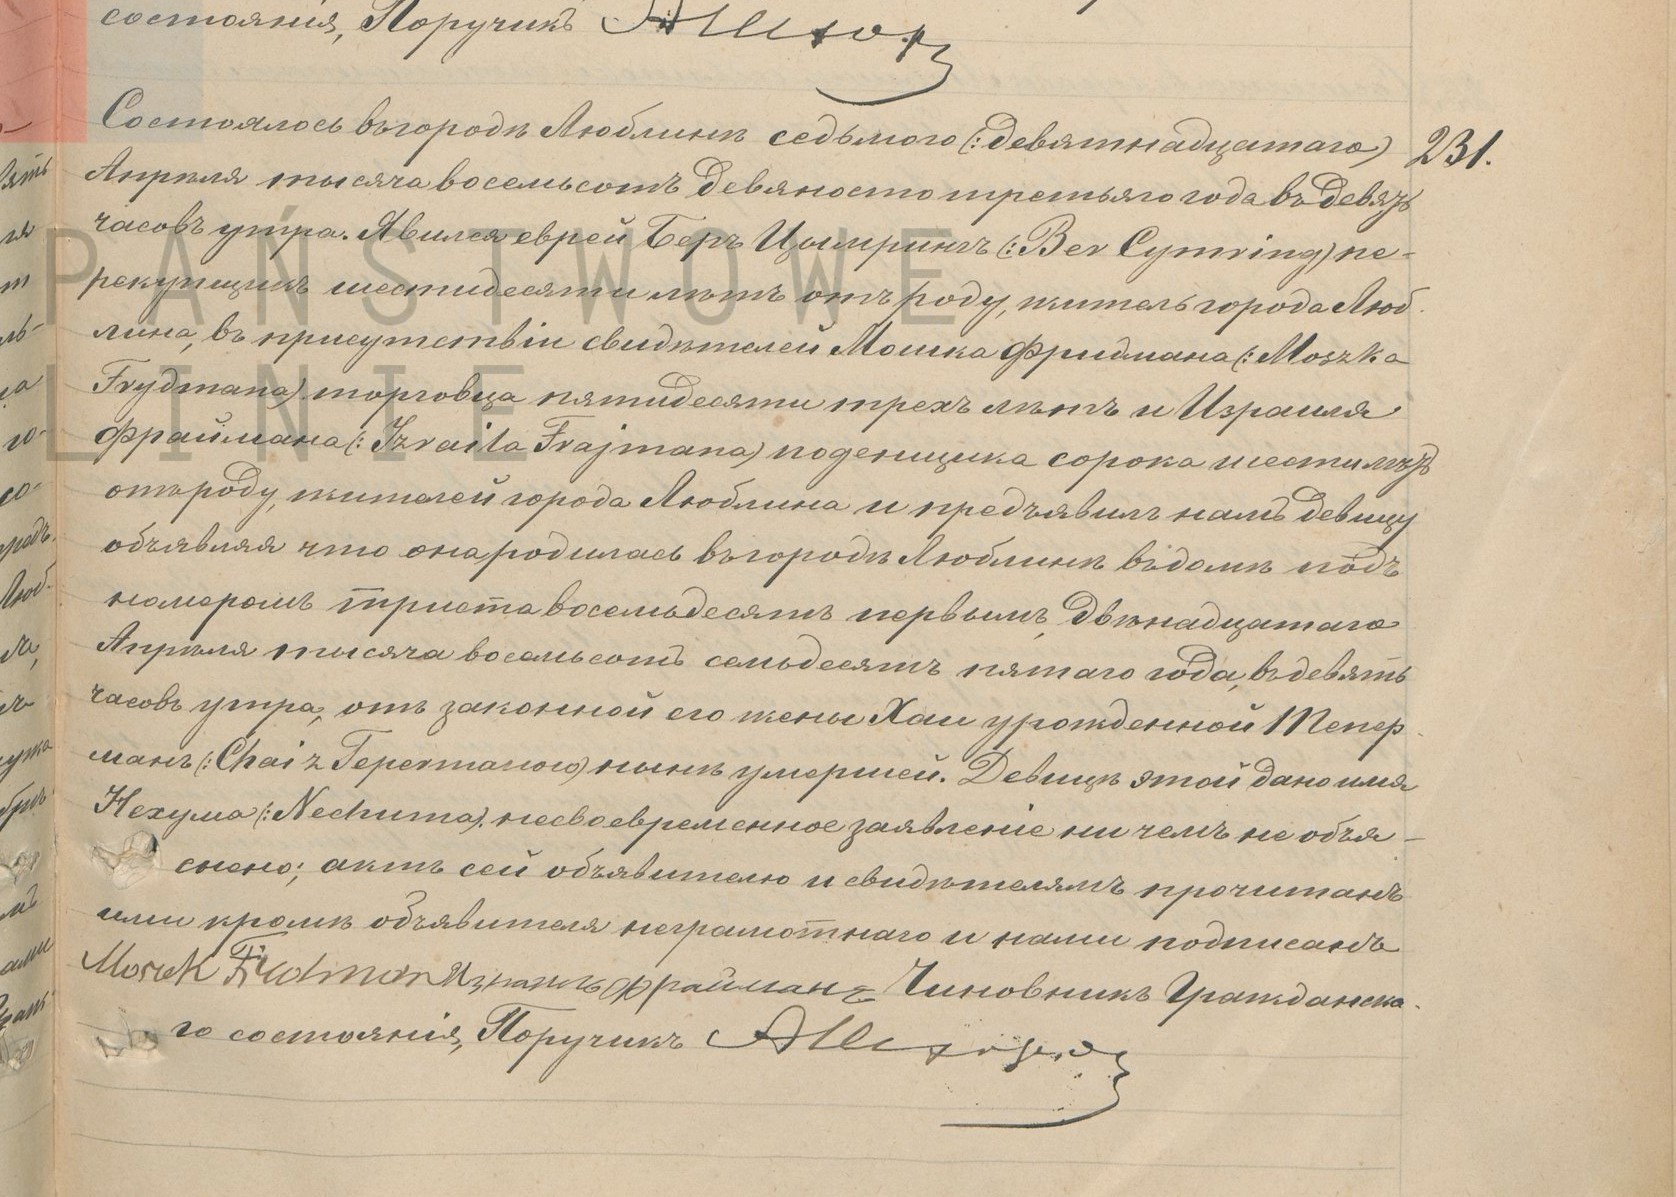 состоянія, Поручикъ
Состоялось въ городѣ Люблинѣ седьмого (: девятнадцатаго)
231.
Апрѣля тысяча восемьсотъ девяносто третьяго года въ девять
часовъ утра. Явился еврей Беръ Цымрингъ (: Ber Cymring) пе-
рекупщикъ шестидесяти лѣтъ отъ роду, житель города Люб-
лина, въ присутствіи свидѣтелей Мошка Фридмана (: Moszka
Frydmana) торговца пятидесяти трехъ лѣтъ и Израиля
Фраймана (: Izraila Frajmana) поденщика сорока шести лѣтъ
отъ роду, жителей города Люблина и предъявилъ намъ девицу
объявляя что она родилась въ городѣ Люблинѣ въ домѣ подъ
номеромъ триста восемьдесятъ первымъ, двѣнадцатаго
Апрѣля тысяча восемьсотъ семьдесятъ пятаго года, въ девять
часовъ утра, отъ законной его жены Хаи урожденной Тепер-
манъ (: Chai z Tepermanow) нынѣ умершей. Девицѣ этой дано имя
Нехума (: Nechuma). несвоевременное заявленіе ни чемъ не объя-
снено; актъ сей объявителю и свидѣтелямъ прочитанъ
ими кромѣ объявителя неграмотнаго и нами подписанъ
Moszek Fridman Израиль Файманъ Чиновникъ Гражданска-
го состоянія, Поручикъ
PAŃSTWOWE
LINIE